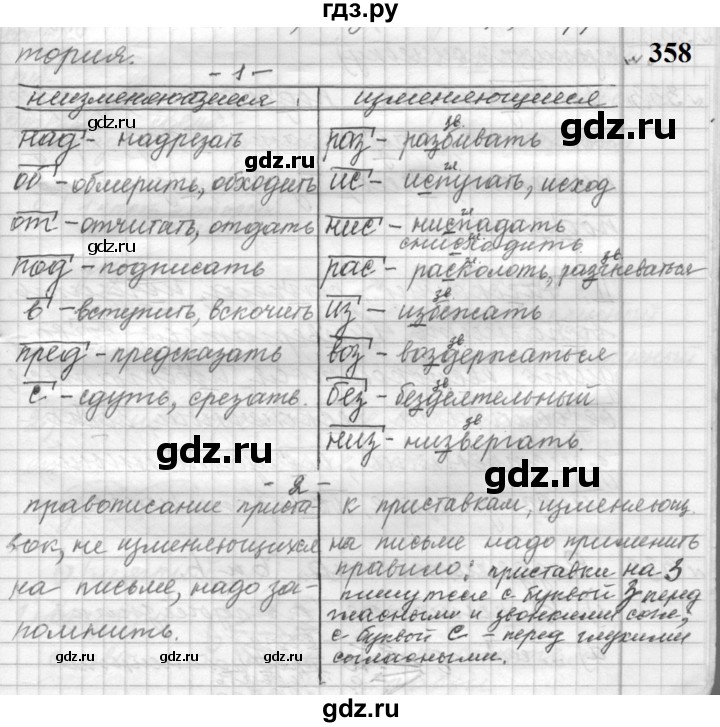 гдз.ру
тория.
358
- 1 -
неизменяющиеся изменяющиеся
над - надрезать
раз - разбивать
об - обмерить, обходить
ис - испугать, исход
от - отчитать, отдать
нис - ниспадать
снисходить
под - подписать
рас - расколоть, разгневаться
в - вступить, вскочить
из - избежать
пред - предсказать
воз - воздержаться
с - сдуть, срезать.
без - бездеятельный
низ - низвергать.
- 2 -
правописание приста-
вок, не изменяющихся
на письме, надо за-
помнить.
к приставкам, изменяющ.
на письме надо применить
правило: приставки на З
пишутся с буквой З перед
гласными и звонкими согл,
с буквой С - перед глухими
согласными.
gdz.ru gdz.ru gdz.ru